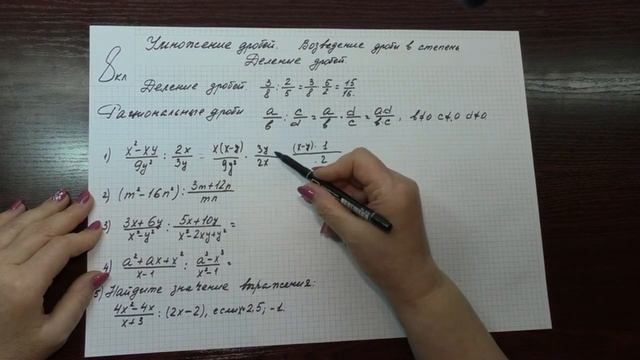 8 кл
Умножение дробей. Возведение дроби в степень
Деление дробей.
Деление дробей 3/8 : 2/5 = 3/8 · 5/2 = 15/16
Рациональные дроби a/b : c/d = a/b · d/c = ad/bc, b≠0 c≠0 d≠0
1) (x²-xy)/9y² : 2x/3y = x(x-y)/9y² · 3y/2x (x-y)·1/·2
2) (m²-16n²) : (3m+12n)/mn
3) (3x+6y)/(x²-y²) : (5x+10y)/(x²-2xy+y²) =
4) (a²+ax+x²)/(x-1) : (a³-x³)/(x²-1) =
5) Найдите значение выражения:
(4x²-4x)/(x+3) : (2x-2), если x=2,5; -1.